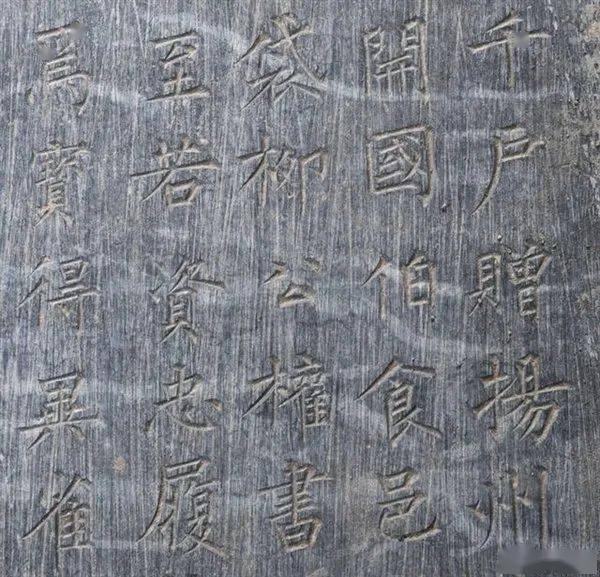 千户贈揚州
開國伯食邑
袋柳公權書
至若資忠履
為寶得異雀